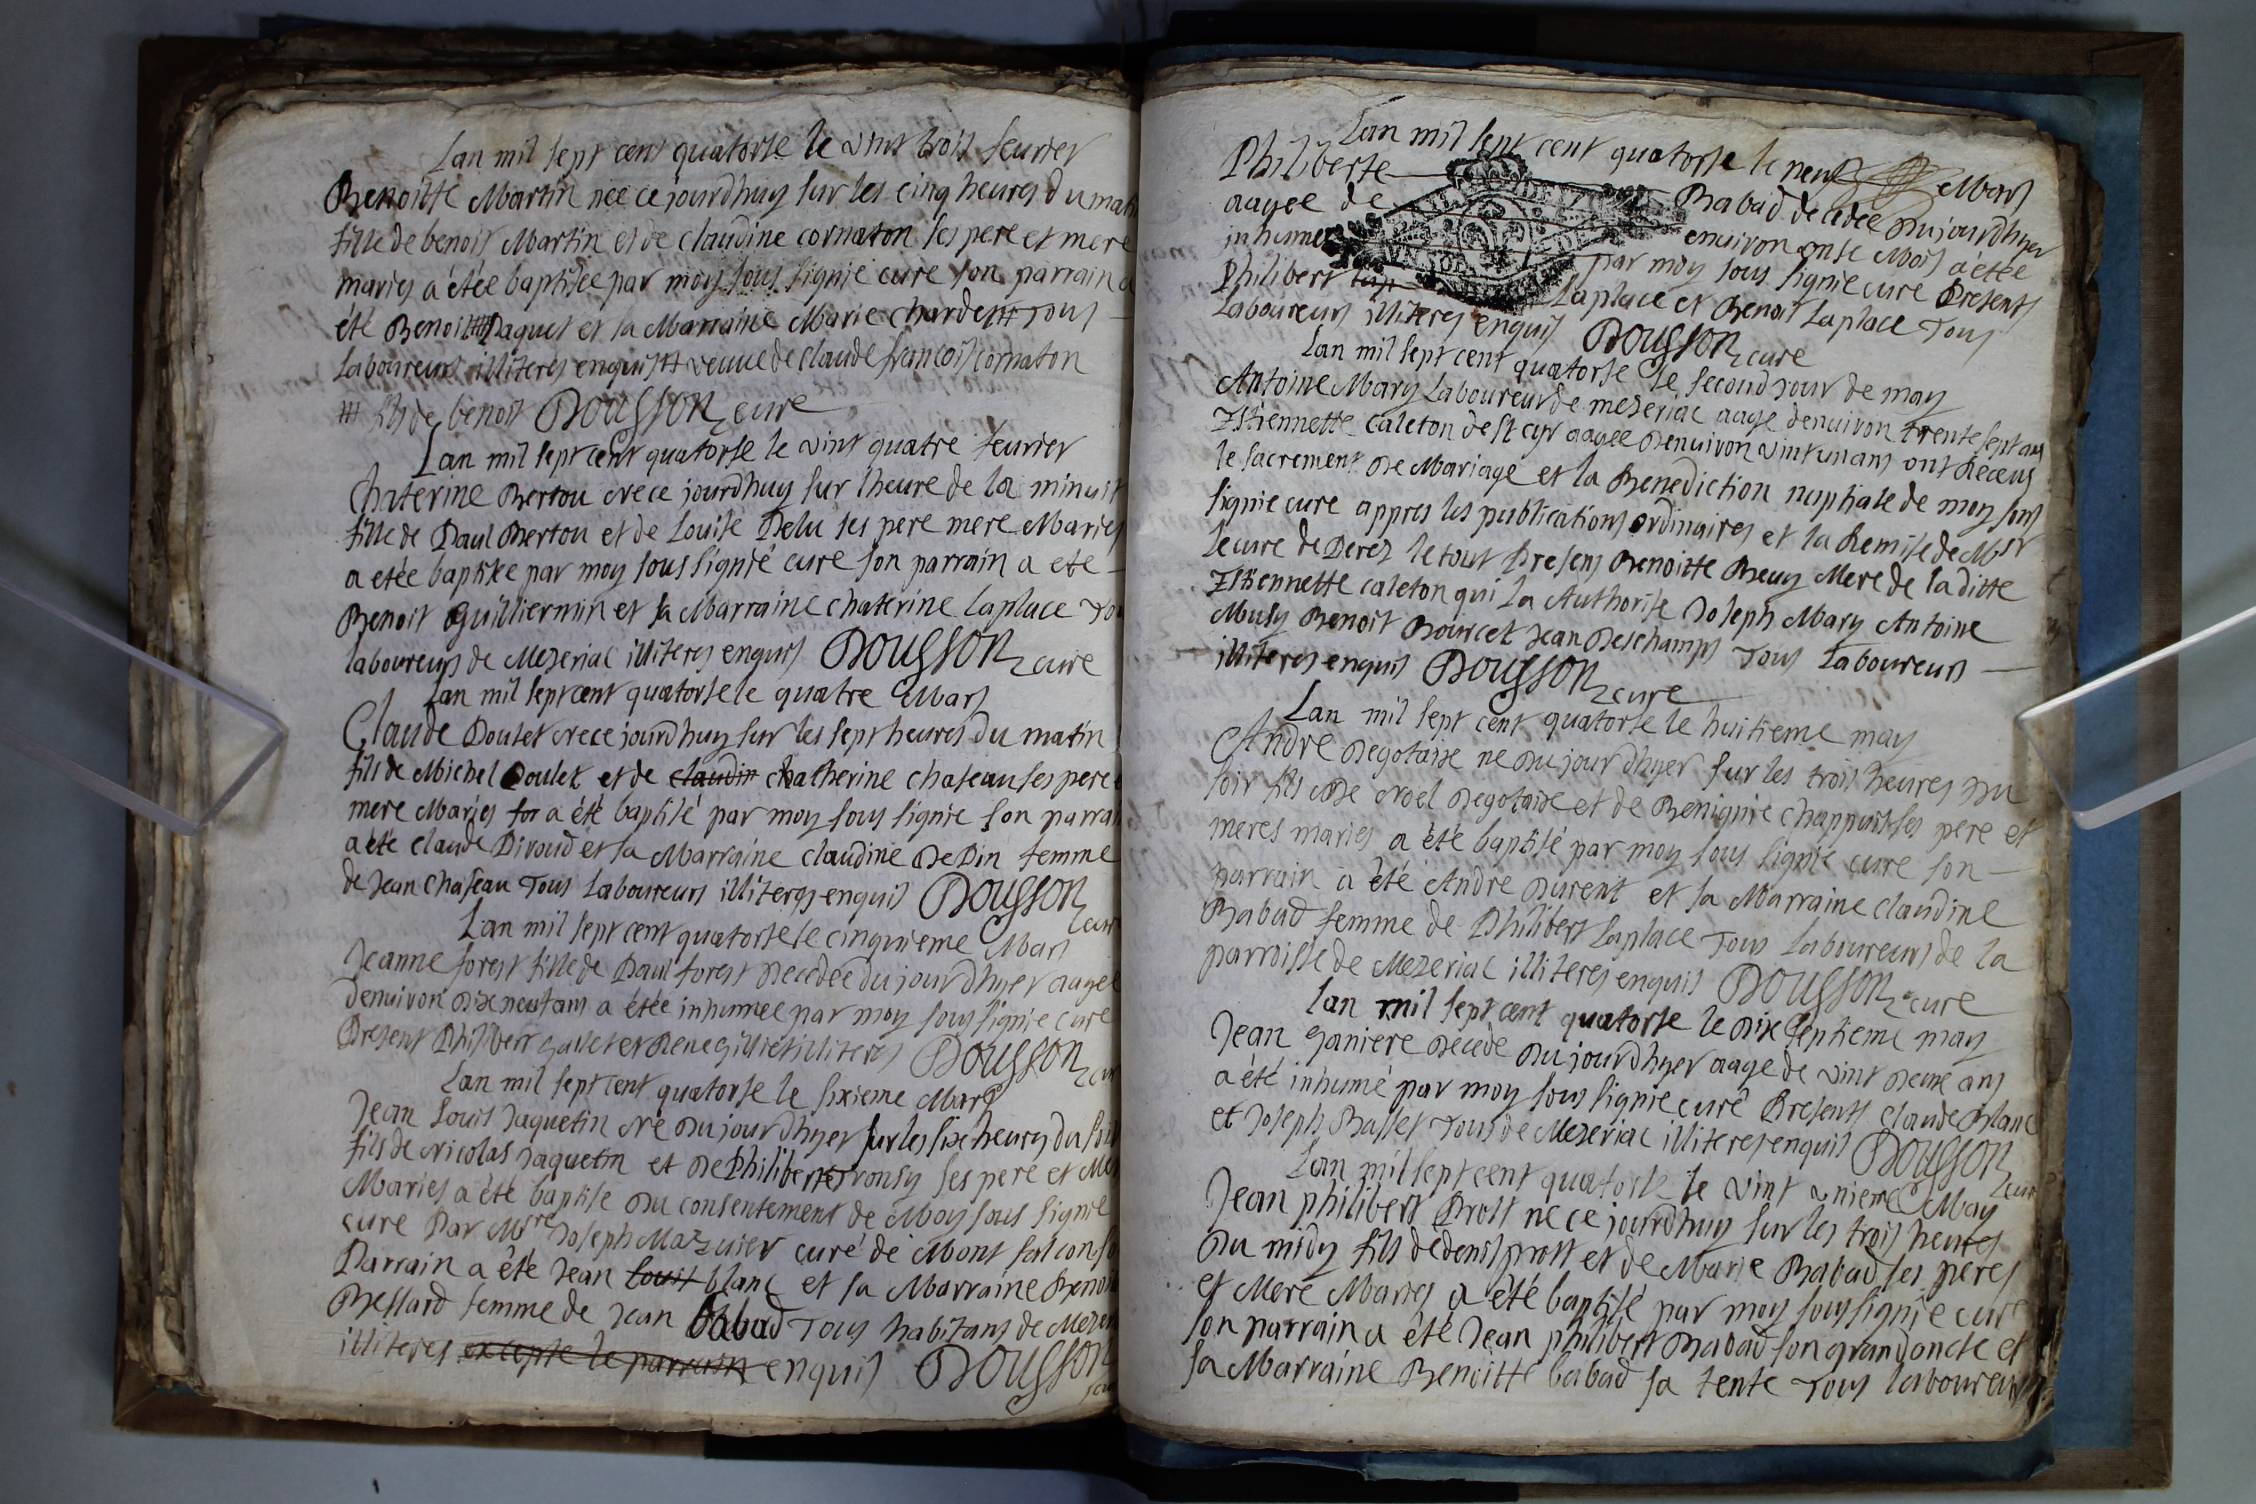 Lan mil sept cent quatorse le vint trois feurier
Benoitte Martin nee ce jourdhuy sur les cinq heures du matin
fille de benoit Martin et de claudine cornaton ses pere et mere
maries a étée baptisée par moy sous signie cure son parrain a
été Benoit # Paquet et sa Marraine Marie charden # Tous
laboureurs illiteres enquis # veuve de Claude francois cornaton
# fils de benoit DOUSSON cure
Lan mil sept cent quatorse le vint quatre feurier
Chaterine Bertou nee ce jourdhuy sur lheure de la minuit
fille de Paul Bertou et de Louise Delu ses pere mere Maries
a etée baptisée par moy sous signié cure son parrain a ete
Benoit Guilliermin et sa Marraine chaterine Laplace Tous
laboureurs de Mezeriac illiteres enquis DOUSSON cure
Lan mil sept cent quatorse le quatre Mars
Claude Doulet nee ce jourdhuy sur les sept heures du matin
fils de Michel Doulet et de claudin chatherine chaseau ses pere e
mere Maries a été baptisé par moy sous signie son parrain
a été claude Piroud et sa Marraine claudine DePin femme
de Jean chaseau Tous Laboureurs illiteres enquis DOUSSON
cure
Lan mil sept cent quatorse le cinquieme Mars
Jeanne forest fille de Paul forest Decedée du jour dhyer aagee
denuiron Dix neuf ans a étée inhumée par moy sous signie cure
Present Philibert Gallet et Rene Gilliet illiteres DOUSSON cure
Lan mil sept cent quatorse le sixieme Mars
Jean Louis Jaquetin Né Du jour dhyer sur les six heures du soir
fils de Nicolas Jaquetin et De Philiberte ses pere et Mere
Maries a été baptisé Du consentement de Moy sous signie
cure Par Msre Joseph Mazuier curé de Mont falcon
Parrain a été Jean Louis blanc et sa Marraine Benoi
Bellard femme de Jean babad Tous habitans de Mezeri
illiteres excepte le parrain enquis DOUSSON
cure
Lan mil sept cent quatorse le neuf Mars
Philiberte Babad decedée Du jour dhyer
aagee de enuiron onse Mois a étée
inhumee par moy sous signie cure Presents
Philibert Laplace et Benoit Laplace Tous
Laboureurs illiteres enquis DOUSSON cure
Lan mil sept cent quatorse le second jour de may
Antoine Mary Laboureur de mezeriac aagé denuiron trente sept ans
Estiennette Caleton de St Cyr aagee Denuiron vint un ans ont Receus
le sacrement De Mariage et la Benediction nuptiale de moy sous
signie cure appres les publications ordinaires et la Remise de Msr
le cure de Perez le tout Presens Benoitte Mere de la ditte
Estiennette caleton qui La Authorise Joseph Mary Antoine
Musy Benoit Bourcet Jean Deschamps Tous Laboureurs
illiteres enquis DOUSSON cure
Lan mil sept cent quatorse le huitieme may
Andre Degotaise ne Du jour dhyer sur les trois heures Du
soir fils De Noel Degotaise et de Benignie chappuis ses pere et
meres maries a été baptisé par moy sous signié cure son
parrain a été Andre Durent et sa Marraine claudine
Babad femme de Philibert Laplace Tous Laboureurs de la
parroisse de Mezeriac illiteres enquis DOUSSON cure
Lan mil sept cent quatorse le Dix septieme may
Jean Ganiere Decede Du jour dhyer aage de vint ans
a été inhumé par moy sous signie curé Presents Claude Blanc
et Joseph Basset Tous de Mezeriac illiteres enquis DOUSSON
cure
Lan mil sept cent quatorse le vint unieme May
Jean philibert Prost né ce jourdhuy sur les trois heures
Du midy fils de denis prost et de Marie Babad ses peres
et Mere Maries a été baptisé par moy sous signie cure
son parrain a été Jean philibert Babad son grand oncle et
sa Marraine Benoitte babad sa tente Tous laboureurs